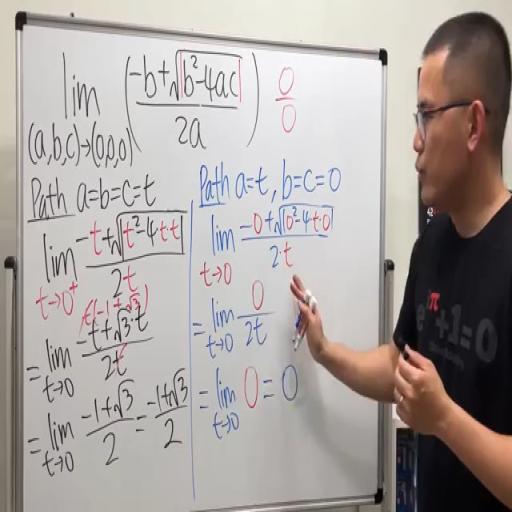 lim (a,b,c)→(0,0,0) ( (-b+√|b²-4ac|) / 2a ) 0/0
Path a=b=c=t
lim t→0⁺ (-t+√|t²-4·t·t|) / 2t
t(-1+√3)
= lim t→0 (-t+√3·t) / 2t
= lim t→0 (-1+√3) / 2 = (-1+√3) / 2
Path a=t, b=c=0
lim t→0 (-0+√|0²-4·t·0|) / 2·t
= lim t→0 0 / 2t
= lim t→0 0 = 0
e^π +1=0